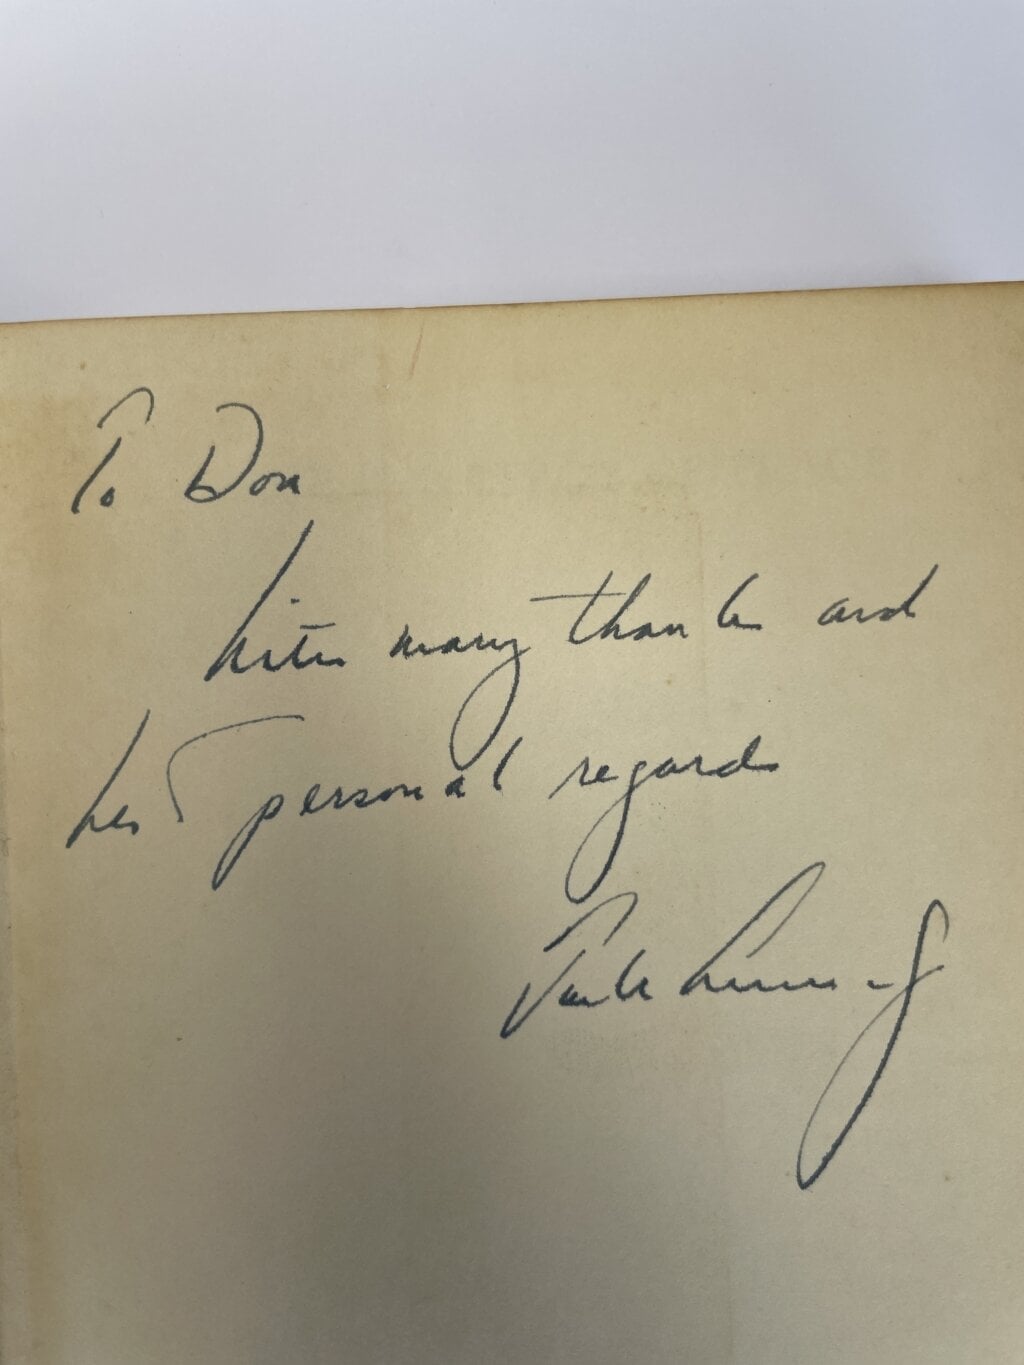 To Don
With many thanks and
best personal regards